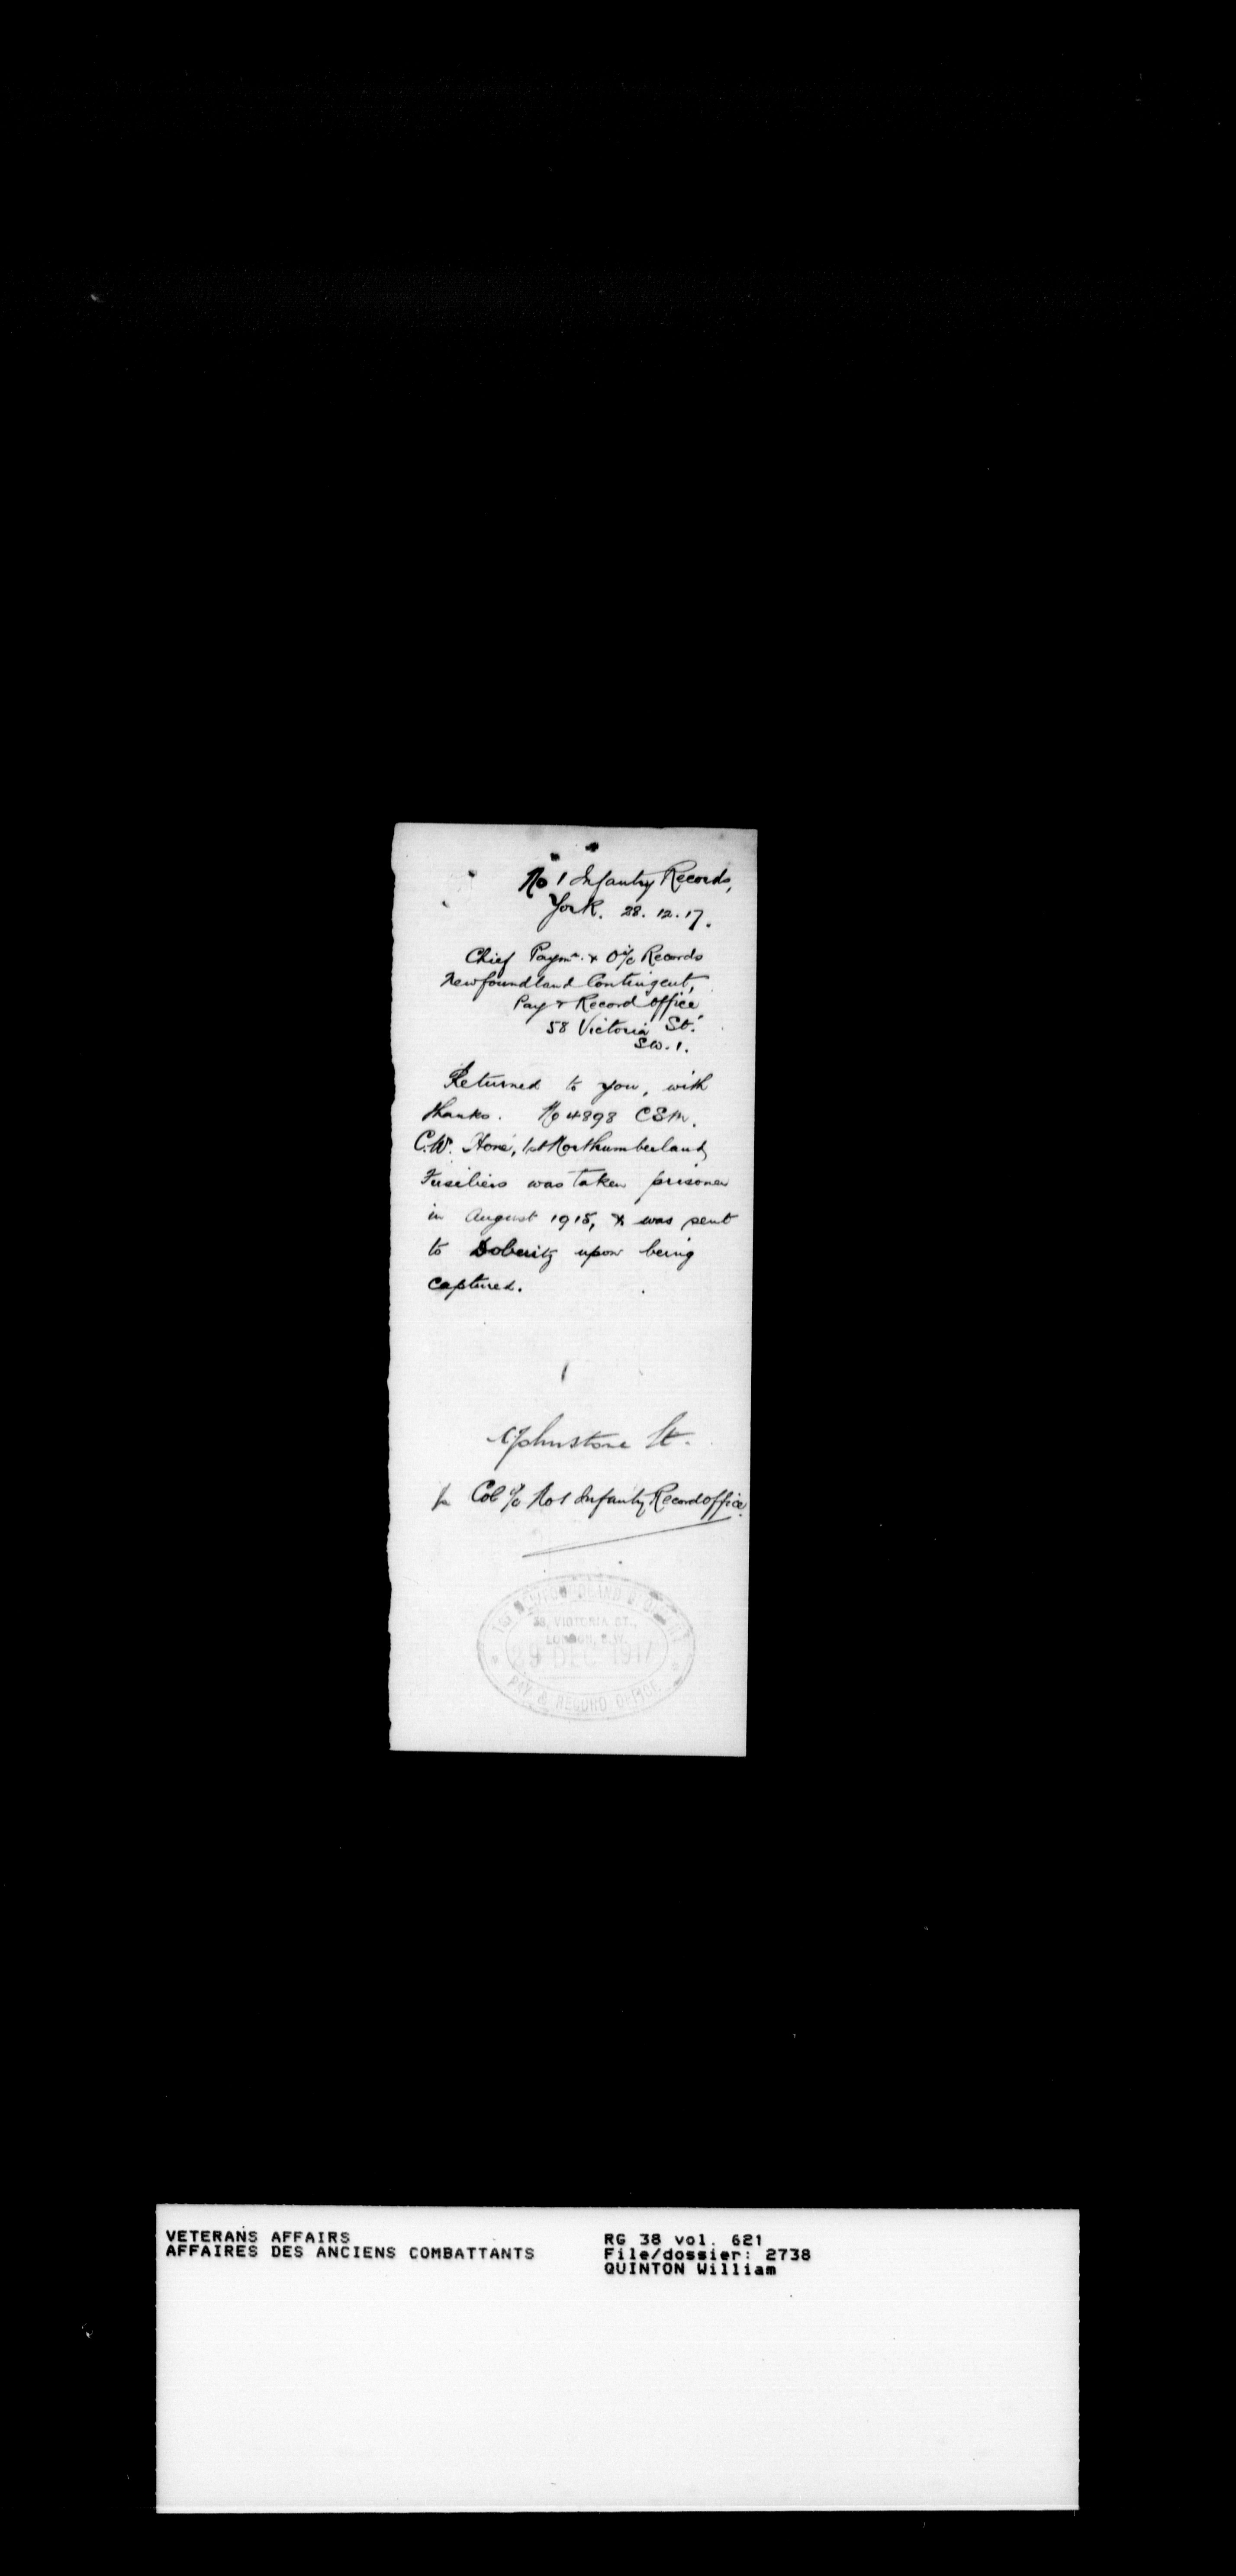 No 1 Infantry Records,
York. 28. 12. 17.
Chief Paymr. & O i/c Records
Newfoundland Contingent,
Pay & Record Office
58 Victoria St.
SW. 1.
Returned to you, with
thanks. No 4898 CSM.
C.W. Hone, 1st Northumberland
Fusiliers was taken prisoner
in August 1915, & was sent
to Doberitz upon being
captured.
Johnstone Lt.
for Col i/c No 1 Infantry Record Office.
1ST NEWFOUNDLAND
58, VICTORIA ST.,
LONDON, S.W.
29 DEC 1917
PAY & RECORD OFFICE
VETERANS AFFAIRS
AFFAIRES DES ANCIENS COMBATTANTS
RG 38 vol. 621
File/dossier: 2738
QUINTON William